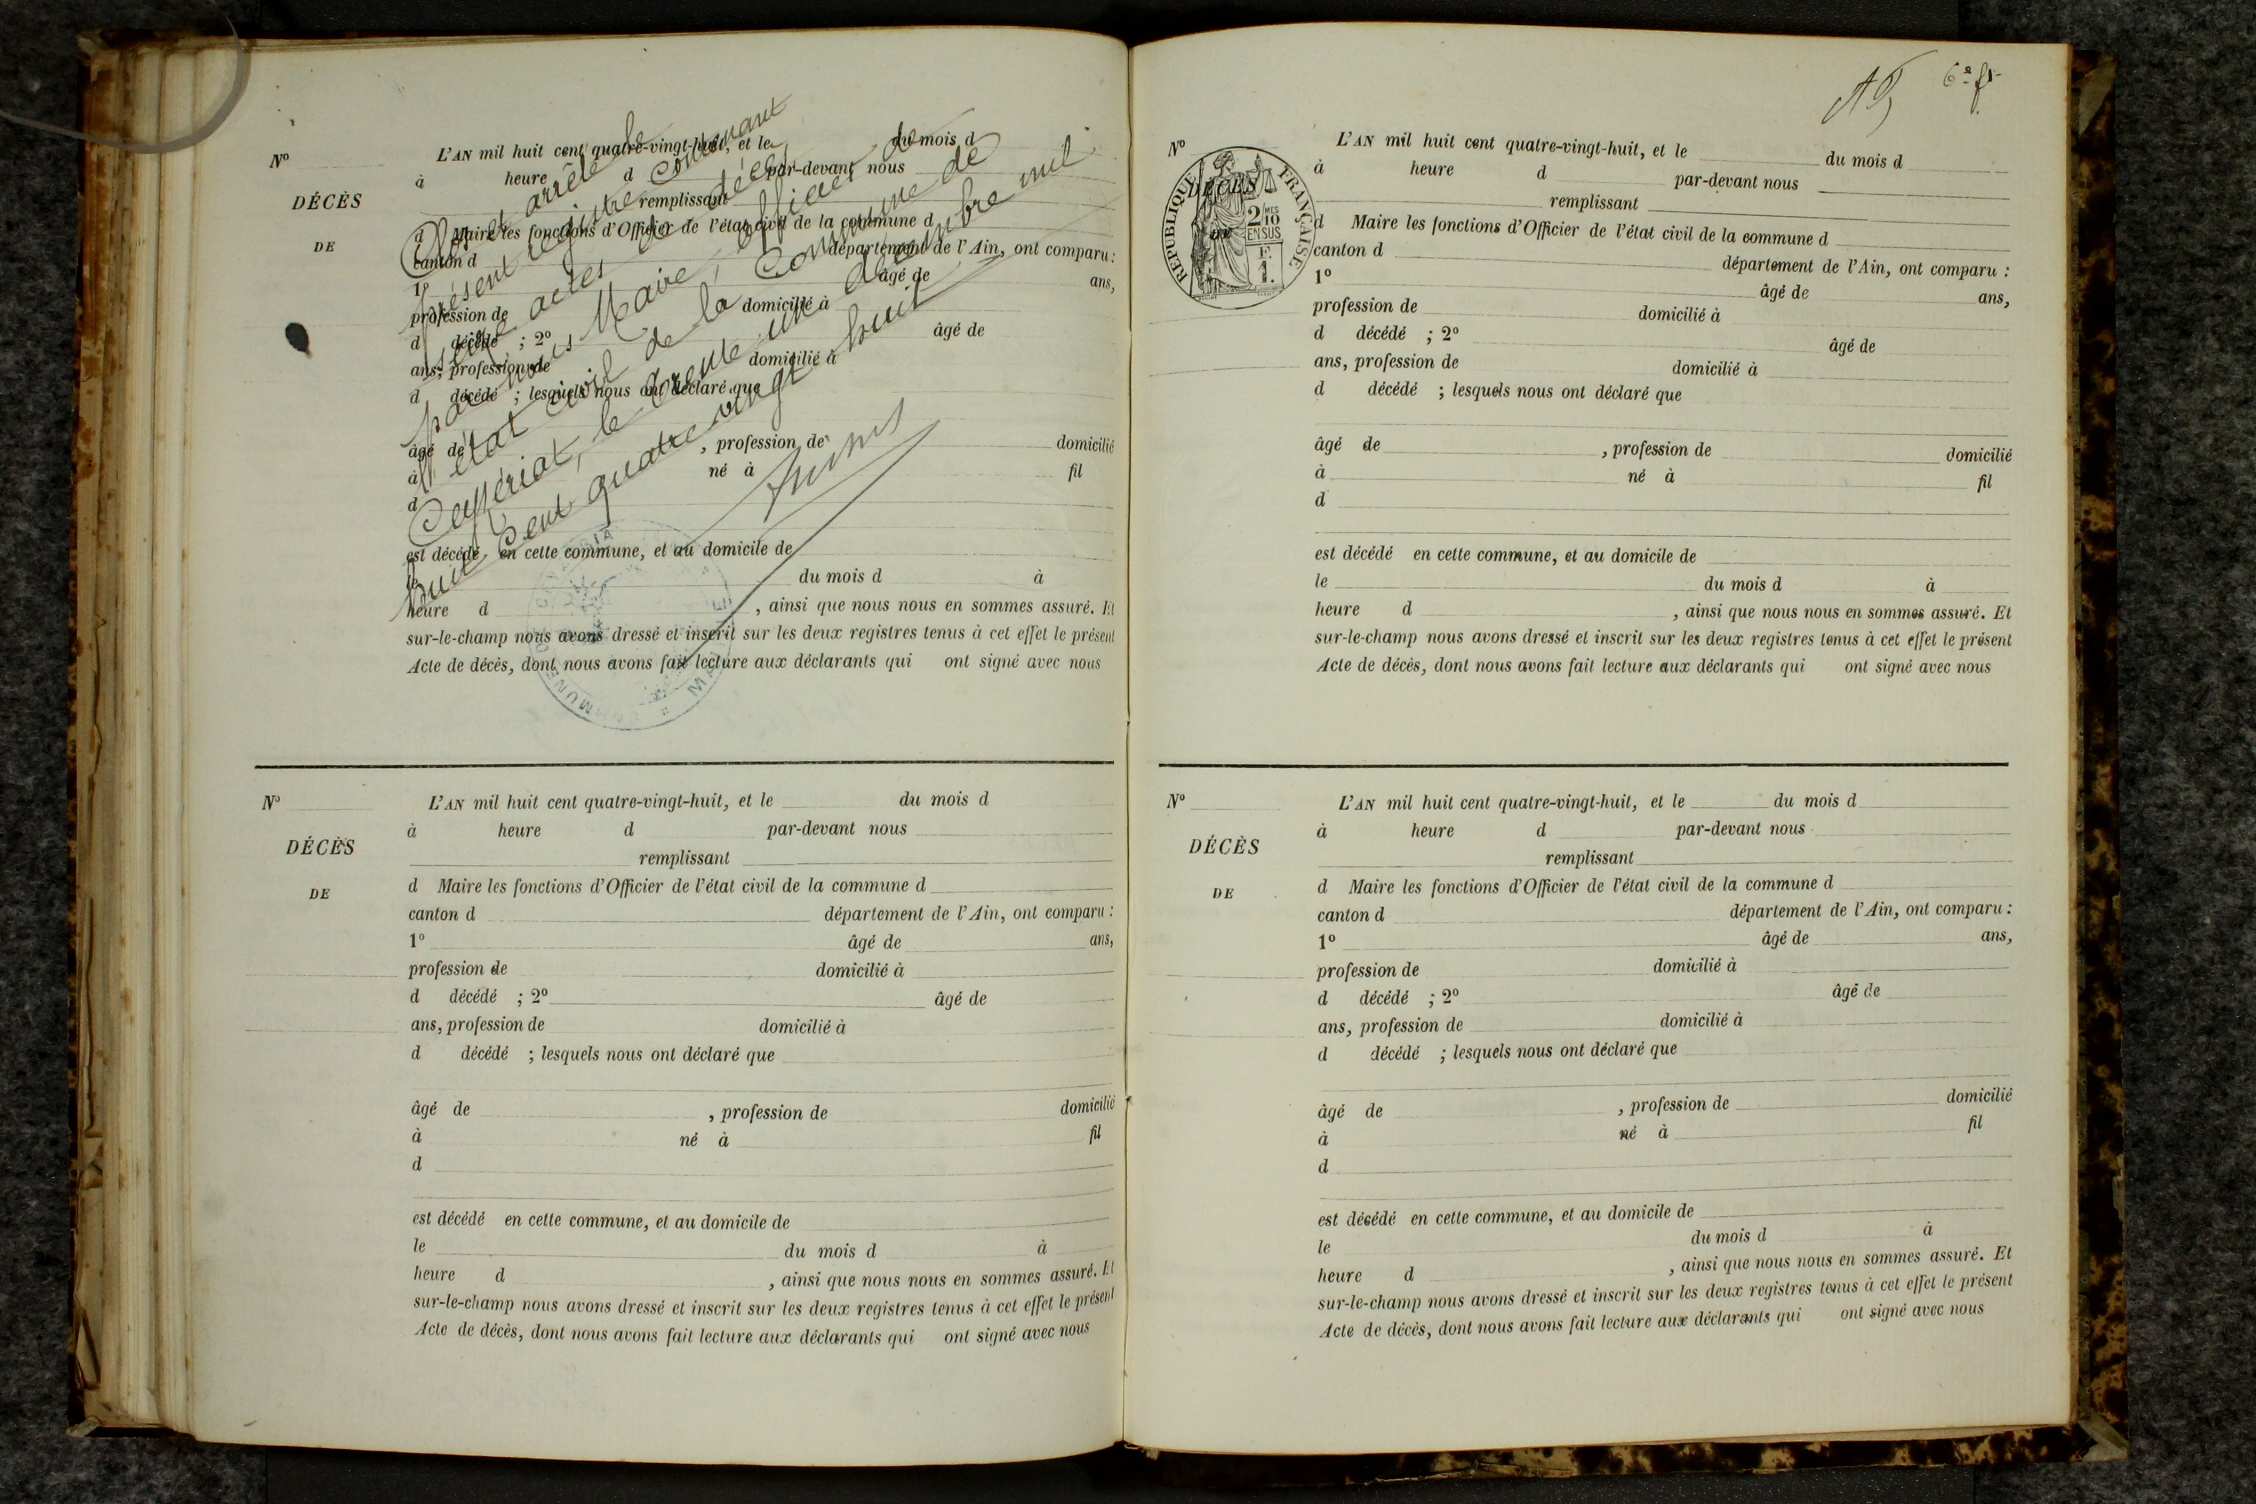 N° L'AN mil huit cent quatre-vingt-huit, et le du mois d
à heure d par-devant nous
DÉCÈS
remplissant
DE
d Maire les fonctions d'Officier de l'état civil de la commune d
canton d département de l'Ain, ont comparu :
1° âgé de ans,
profession de domicilié à
d décédé ; 2° âgé de
ans, profession de domicilié à
d décédé ; lesquels nous ont déclaré que
âgé de , profession de domicilié
à né à fil
d
est décédé en cette commune, et au domicile de
le du mois d à
heure d , ainsi que nous nous en sommes assuré. Et
sur-le-champ nous avons dressé et inscrit sur les deux registres tenus à cet effet le présent
Acte de décès, dont nous avons fait lecture aux déclarants qui ont signé avec nous
Clos et arrêté le
présent registre contenant
actes de décès,
par nous Maire, officier de
l'état civil de la Commune de
Ceyzériat, le trente un décembre mil
huit cent quatre vingt huit
COMMUNE
MAI
N° L'AN mil huit cent quatre-vingt-huit, et le du mois d
à heure d par-devant nous
DÉCÈS
remplissant
DE
d Maire les fonctions d'Officier de l'état civil de la commune d
canton d département de l'Ain, ont comparu :
1° âgé de ans,
profession de domicilié à
d décédé ; 2° âgé de
ans, profession de domicilié à
d décédé ; lesquels nous ont déclaré que
âgé de , profession de domicilié
à né à fil
d
est décédé en cette commune, et au domicile de
le du mois d à
heure d , ainsi que nous nous en sommes assuré. Et
sur-le-champ nous avons dressé et inscrit sur les deux registres tenus à cet effet le présent
Acte de décès, dont nous avons fait lecture aux déclarants qui ont signé avec nous
6e f.
N° L'AN mil huit cent quatre-vingt-huit, et le du mois d
à heure d par-devant nous
DÉCÈS
RÉPUBLIQUE FRANÇAISE
2/10 MES
EN SUS
F.
1.
DE
remplissant
d Maire les fonctions d'Officier de l'état civil de la commune d
canton d département de l'Ain, ont comparu :
1° âgé de ans,
profession de domicilié à
d décédé ; 2° âgé de
ans, profession de domicilié à
d décédé ; lesquels nous ont déclaré que
âgé de , profession de domicilié
à né à fil
d
est décédé en cette commune, et au domicile de
le du mois d à
heure d , ainsi que nous nous en sommes assuré. Et
sur-le-champ nous avons dressé et inscrit sur les deux registres tenus à cet effet le présent
Acte de décès, dont nous avons fait lecture aux déclarants qui ont signé avec nous
N° L'AN mil huit cent quatre-vingt-huit, et le du mois d
à heure d par-devant nous
DÉCÈS
remplissant
DE
d Maire les fonctions d'Officier de l'état civil de la commune d
canton d département de l'Ain, ont comparu :
1° âgé de ans,
profession de domicilié à
d décédé ; 2° âgé de
ans, profession de domicilié à
d décédé ; lesquels nous ont déclaré que
âgé de , profession de domicilié
à né à fil
d
est décédé en cette commune, et au domicile de
le du mois d à
heure d , ainsi que nous nous en sommes assuré. Et
sur-le-champ nous avons dressé et inscrit sur les deux registres tenus à cet effet le présent
Acte de décès, dont nous avons fait lecture aux déclarants qui ont signé avec nous